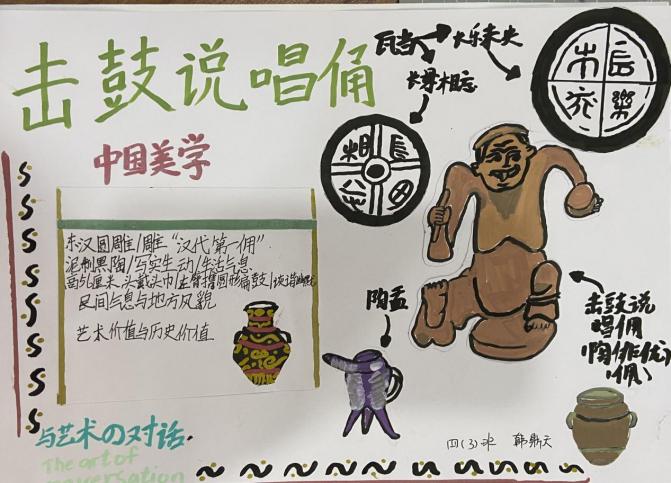 击鼓说唱俑
中国美学
瓦当
长乐未央
长毋相忘
东汉圆雕/雕塑"汉代第一俑".
泥制黑陶/写实生动/生活气息
高56厘米、头戴头巾/左臂揽圆形扁鼓/诙谐幽默
民间气息与地方风貌
艺术价值与历史价值
陶盉
击鼓说
唱俑
(陶俳优)
俑)
四(3)班 韩
与艺术の对话.
The art of
conversation